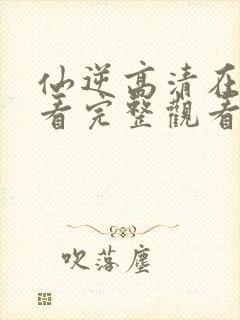 仙逆高清在
看完整觀看
吹落塵